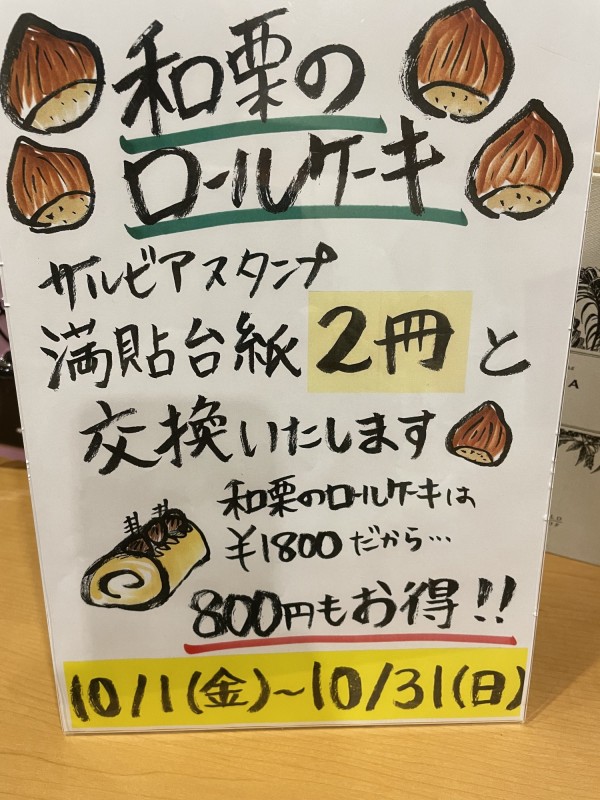 和栗の
ロールケーキ
サルビアスタンプ
満貼台紙2冊と
交換いたします
和栗のロールケーキは
¥1800だから…
800円もお得!!
10/1(金)~10/31(日)